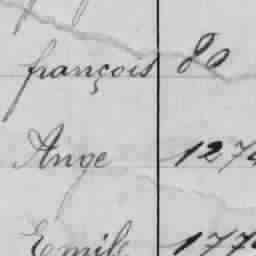 françois 80
Ange 127
Emile 177